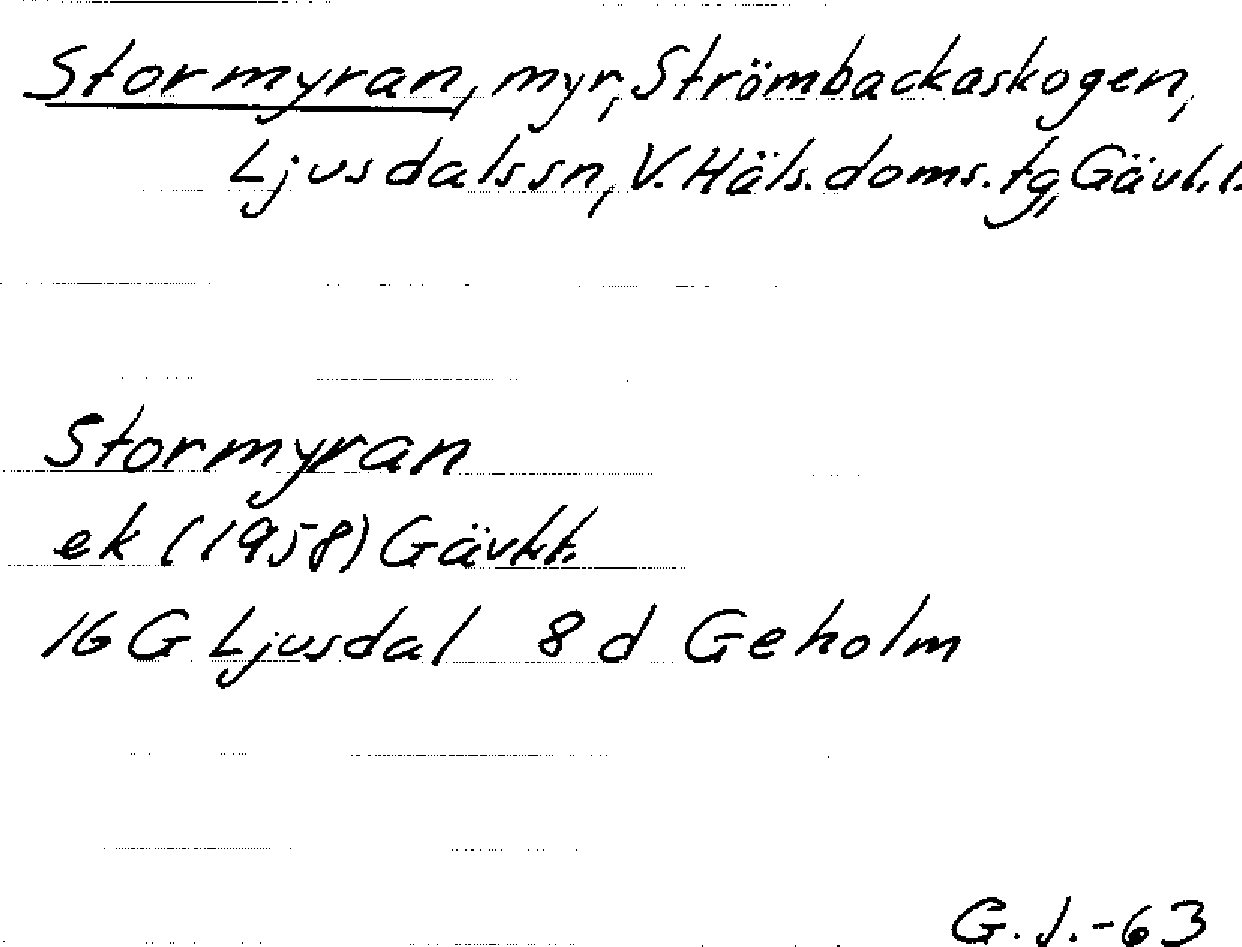 Stormyran, myr, Strömbackaskogen,
Ljusdals sn, V. Häls. doms. tg, Gävl. l.
Stormyran
ek (1958) Gävl.l.
16 G Ljusdal 8 d Geholm
G. J. -63